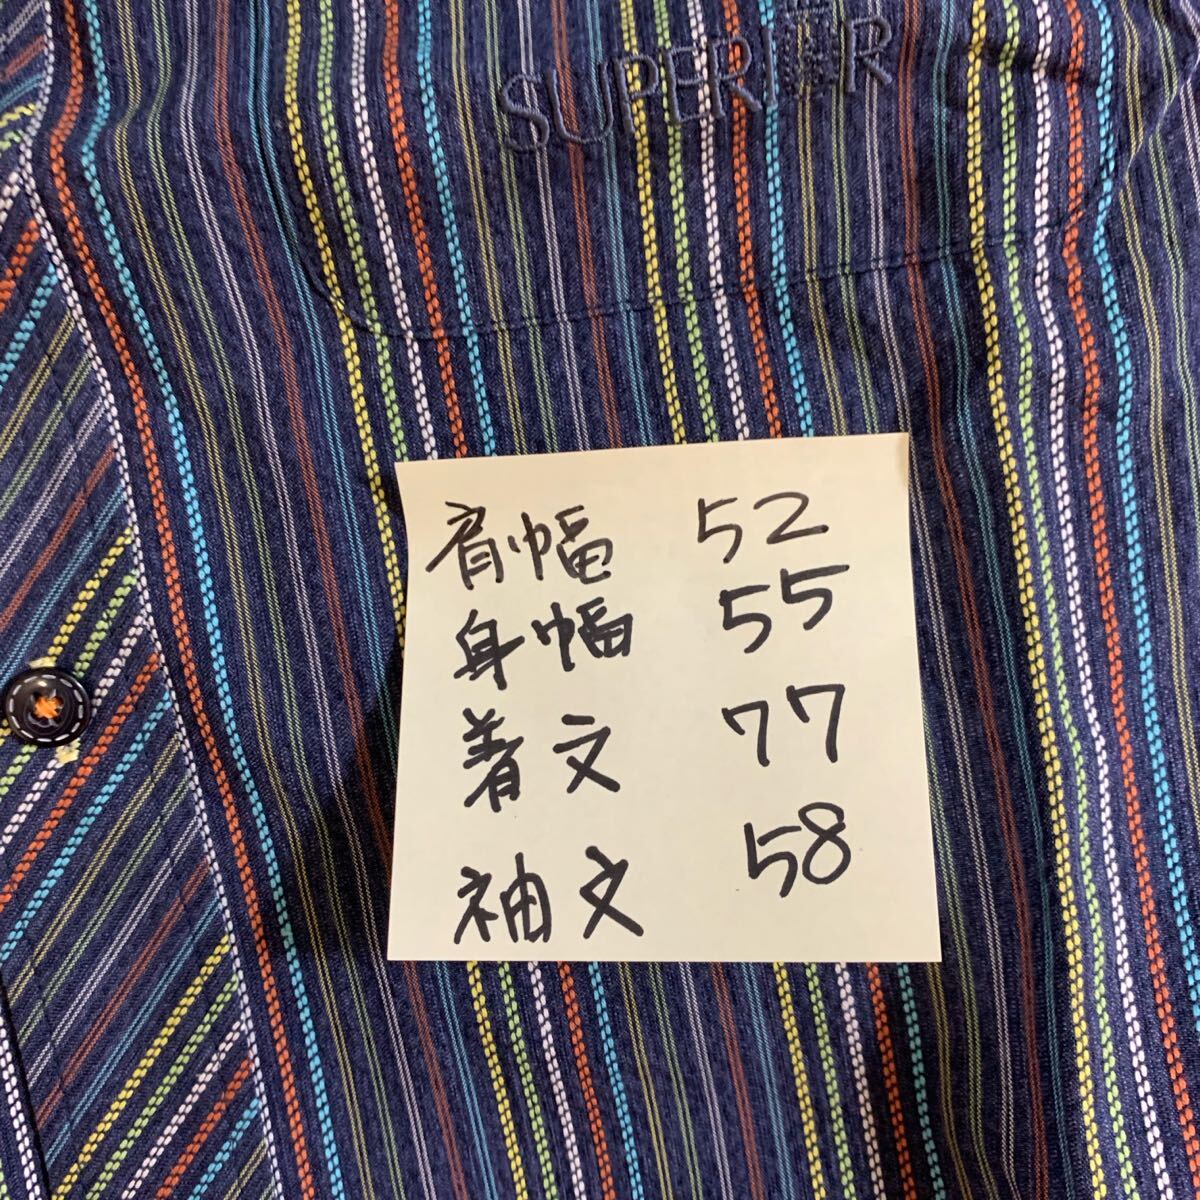 SUPERIOR
肩幅 52
身幅 55
着文 77
袖文 58